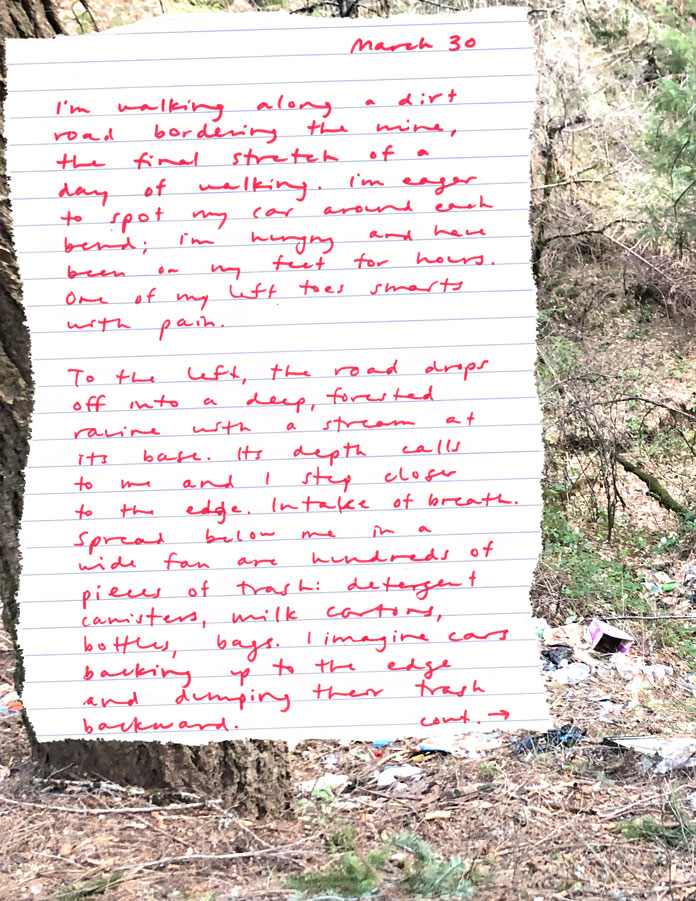 March 30
I'm walking along a dirt
road bordering the mine,
the final stretch of a
day of walking. I'm eager
to spot my car around each
bend; I'm hungry and have
been on my feet for hours.
One of my left toes smarts
with pain.
To the left, the road drops
off into a deep, forested
ravine with a stream at
its base. Its depth calls
to me and I step closer
to the edge. Intake of breath.
Spread below me in a
wide fan are hundreds of
pieces of trash: detergent
canisters, milk cartons,
bottles, bags. I imagine cars
backing up to the edge
and dumping their trash
backward.
cont. →